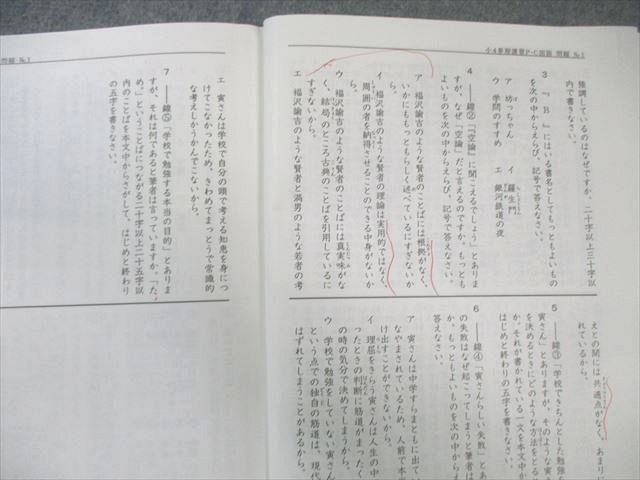 小4夏期講習P-C国語 問題 No.1
強調しているのはなぜですか。二十字以上三十字以
内で書きなさい。
3 『 B 』にはいる書名としてもっともよいもの
を次の中からえらび、記号で答えなさい。
ア 坊っちゃん イ 羅生門
ウ 学問のすすめ エ 銀河鉄道の夜
4 ――線②「『空論』に聞こえるでしょう」とありま
すが、なぜ「空論」だと言えるのですか。もっとも
よいものを次の中からえらび、記号で答えなさい。
ア 福沢諭吉のような賢者のことばには根拠がなく、
いかにももっともらしく述べているにすぎないか
ら。
イ 福沢諭吉のような賢者の理論は実用的ではなく、
周囲の者を納得させることのできる中身がないか
ら。
ウ 福沢諭吉のような賢者のことばには真実味がな
く、結局のところ古典のことばを引用しているに
すぎないから。
エ 福沢諭吉のような賢者と満男のような若者の考
えとの間には共通点がなく、あまりに
れているから。
5 ――線③「学校できちんとした勉強
寅さん」とありますが、そのような寅さ
を決めるときにどのような方法をとる
か。それが書かれている一文を本文中か
はじめと終わりの五字を書きなさい。
6 ――線④「寅さんらしい失敗」とあ
の失敗はなぜ起こってしまうと筆者は
か。もっともよいものを次の中からえ
答えなさい。
ア 寅さんは中学すらまともに出てい
なやまされているため、人前で本
け出すことができないから。
イ 理屈をきらう寅さんは人生の中
ったときの判断に筋道がまったく
の時の気分で決めてしまうから。
ウ 学校で勉強をしていない寅さん
という点での独自の筋道は、現代
はずれてしまうことがあるから。
問題 No.1
エ 寅さんは学校で自分の頭で考える知恵を身につ
けてこなかったため、きわめてまっとうで常識的
な考えしかうかんでこないから。
7 ――線⑤「学校で勉強する本当の目的」とありま
すが、それは何であると筆者は言っていますか。「た
め。」ということばにつながる二十字以上二十五字以
内のことばを本文中からさがして、はじめと終わり
の五字を書きなさい。